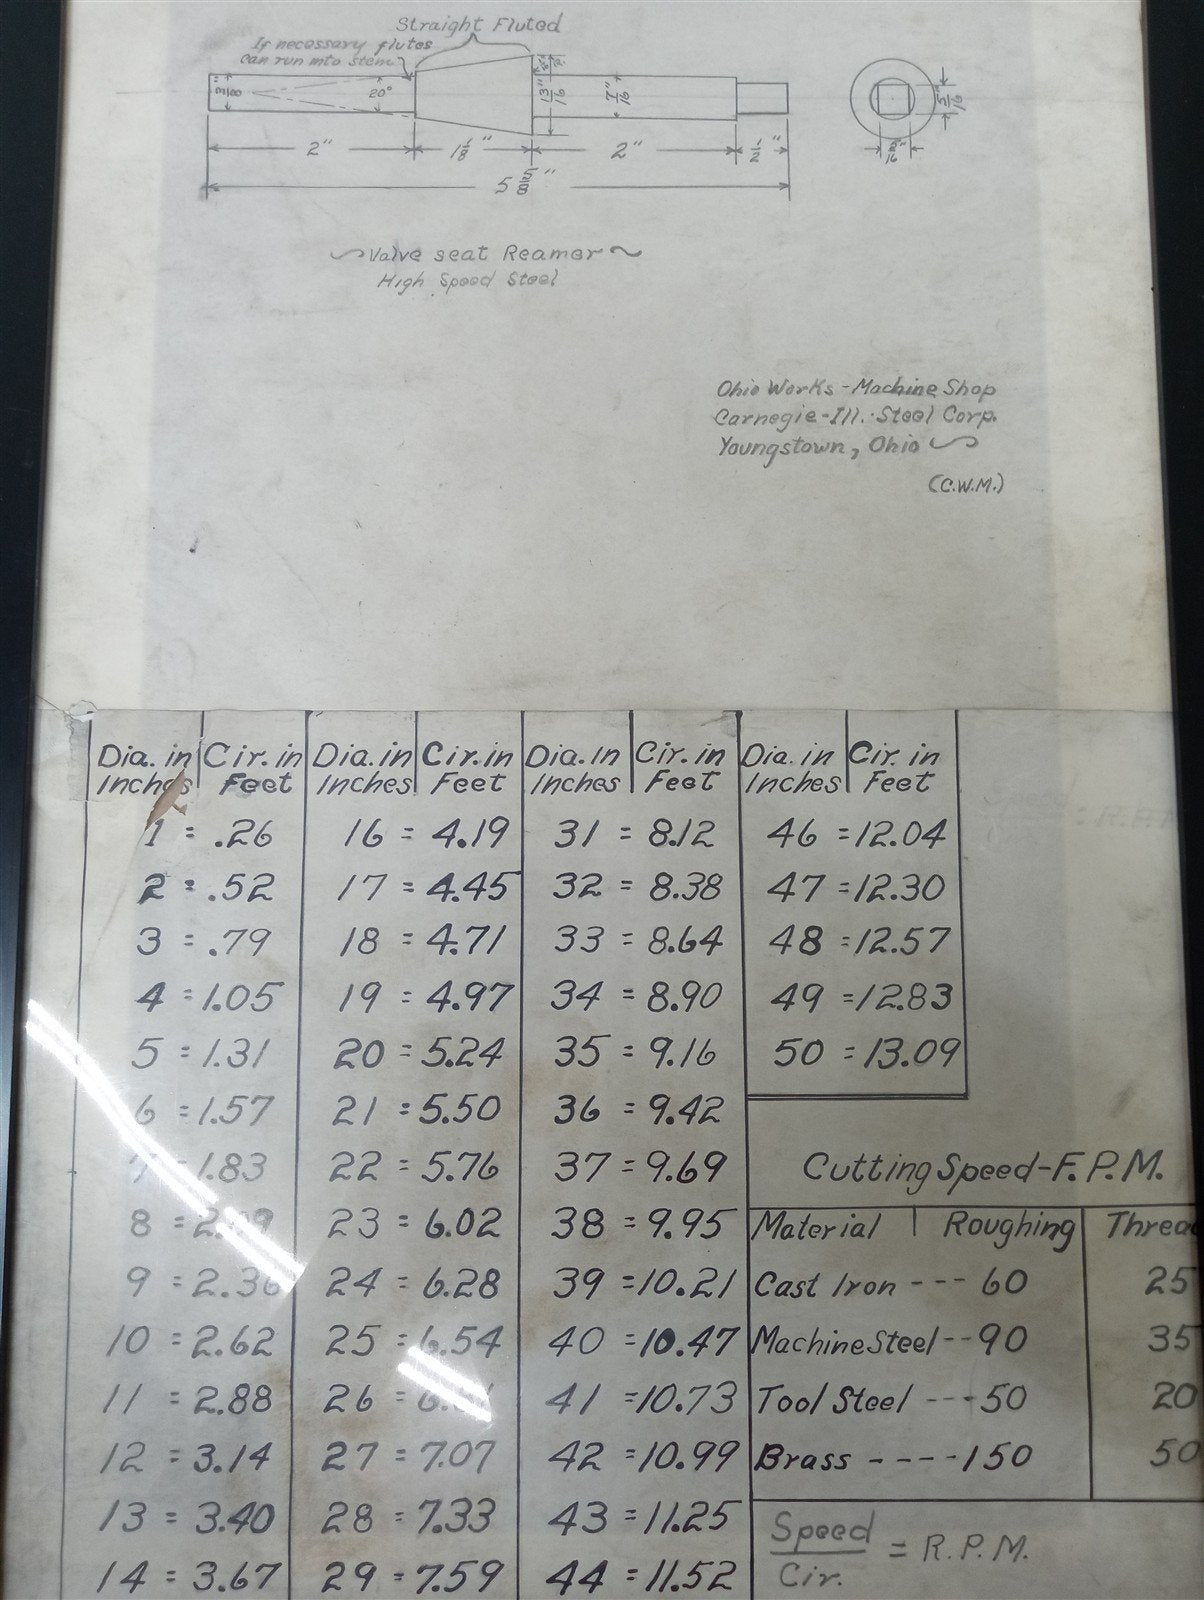 Straight Fluted
If necessary flutes
can run into stem
3/8"
20°
13/16"
7/16"
5/16"
5/16"
2"
1 1/8"
2"
1/2"
5 5/8"
Valve seat Reamer
High Speed Steel
Ohio Works - Machine Shop
Carnegie-Ill. Steel Corp.
Youngstown, Ohio
(C.W.M.)
Dia. in Cir. in Dia. in Cir. in Dia. in Cir. in Dia. in Cir. in
Inches Feet Inches Feet Inches Feet Inches Feet
1 = .26 16 = 4.19 31 = 8.12 46 = 12.04
2 = .52 17 = 4.45 32 = 8.38 47 = 12.30
3 = .79 18 = 4.71 33 = 8.64 48 = 12.57
4 = 1.05 19 = 4.97 34 = 8.90 49 = 12.83
5 = 1.31 20 = 5.24 35 = 9.16 50 = 13.09
6 = 1.57 21 = 5.50 36 = 9.42
7 = 1.83 22 = 5.76 37 = 9.69 Cutting Speed - F.P.M.
8 = 23 = 6.02 38 = 9.95 Material Roughing Threa
9 = 2.36 24 = 6.28 39 = 10.21 Cast Iron --- 60 25
10 = 2.62 25 = 6.54 40 = 10.47 Machine Steel -- 90 35
11 = 2.88 26 = 41 = 10.73 Tool Steel --- 50 20
12 = 3.14 27 = 7.07 42 = 10.99 Brass ---- 150 50
13 = 3.40 28 = 7.33 43 = 11.25
14 = 3.67 29 = 7.59 44 = 11.52
Speed
Cir. = R.P.M.